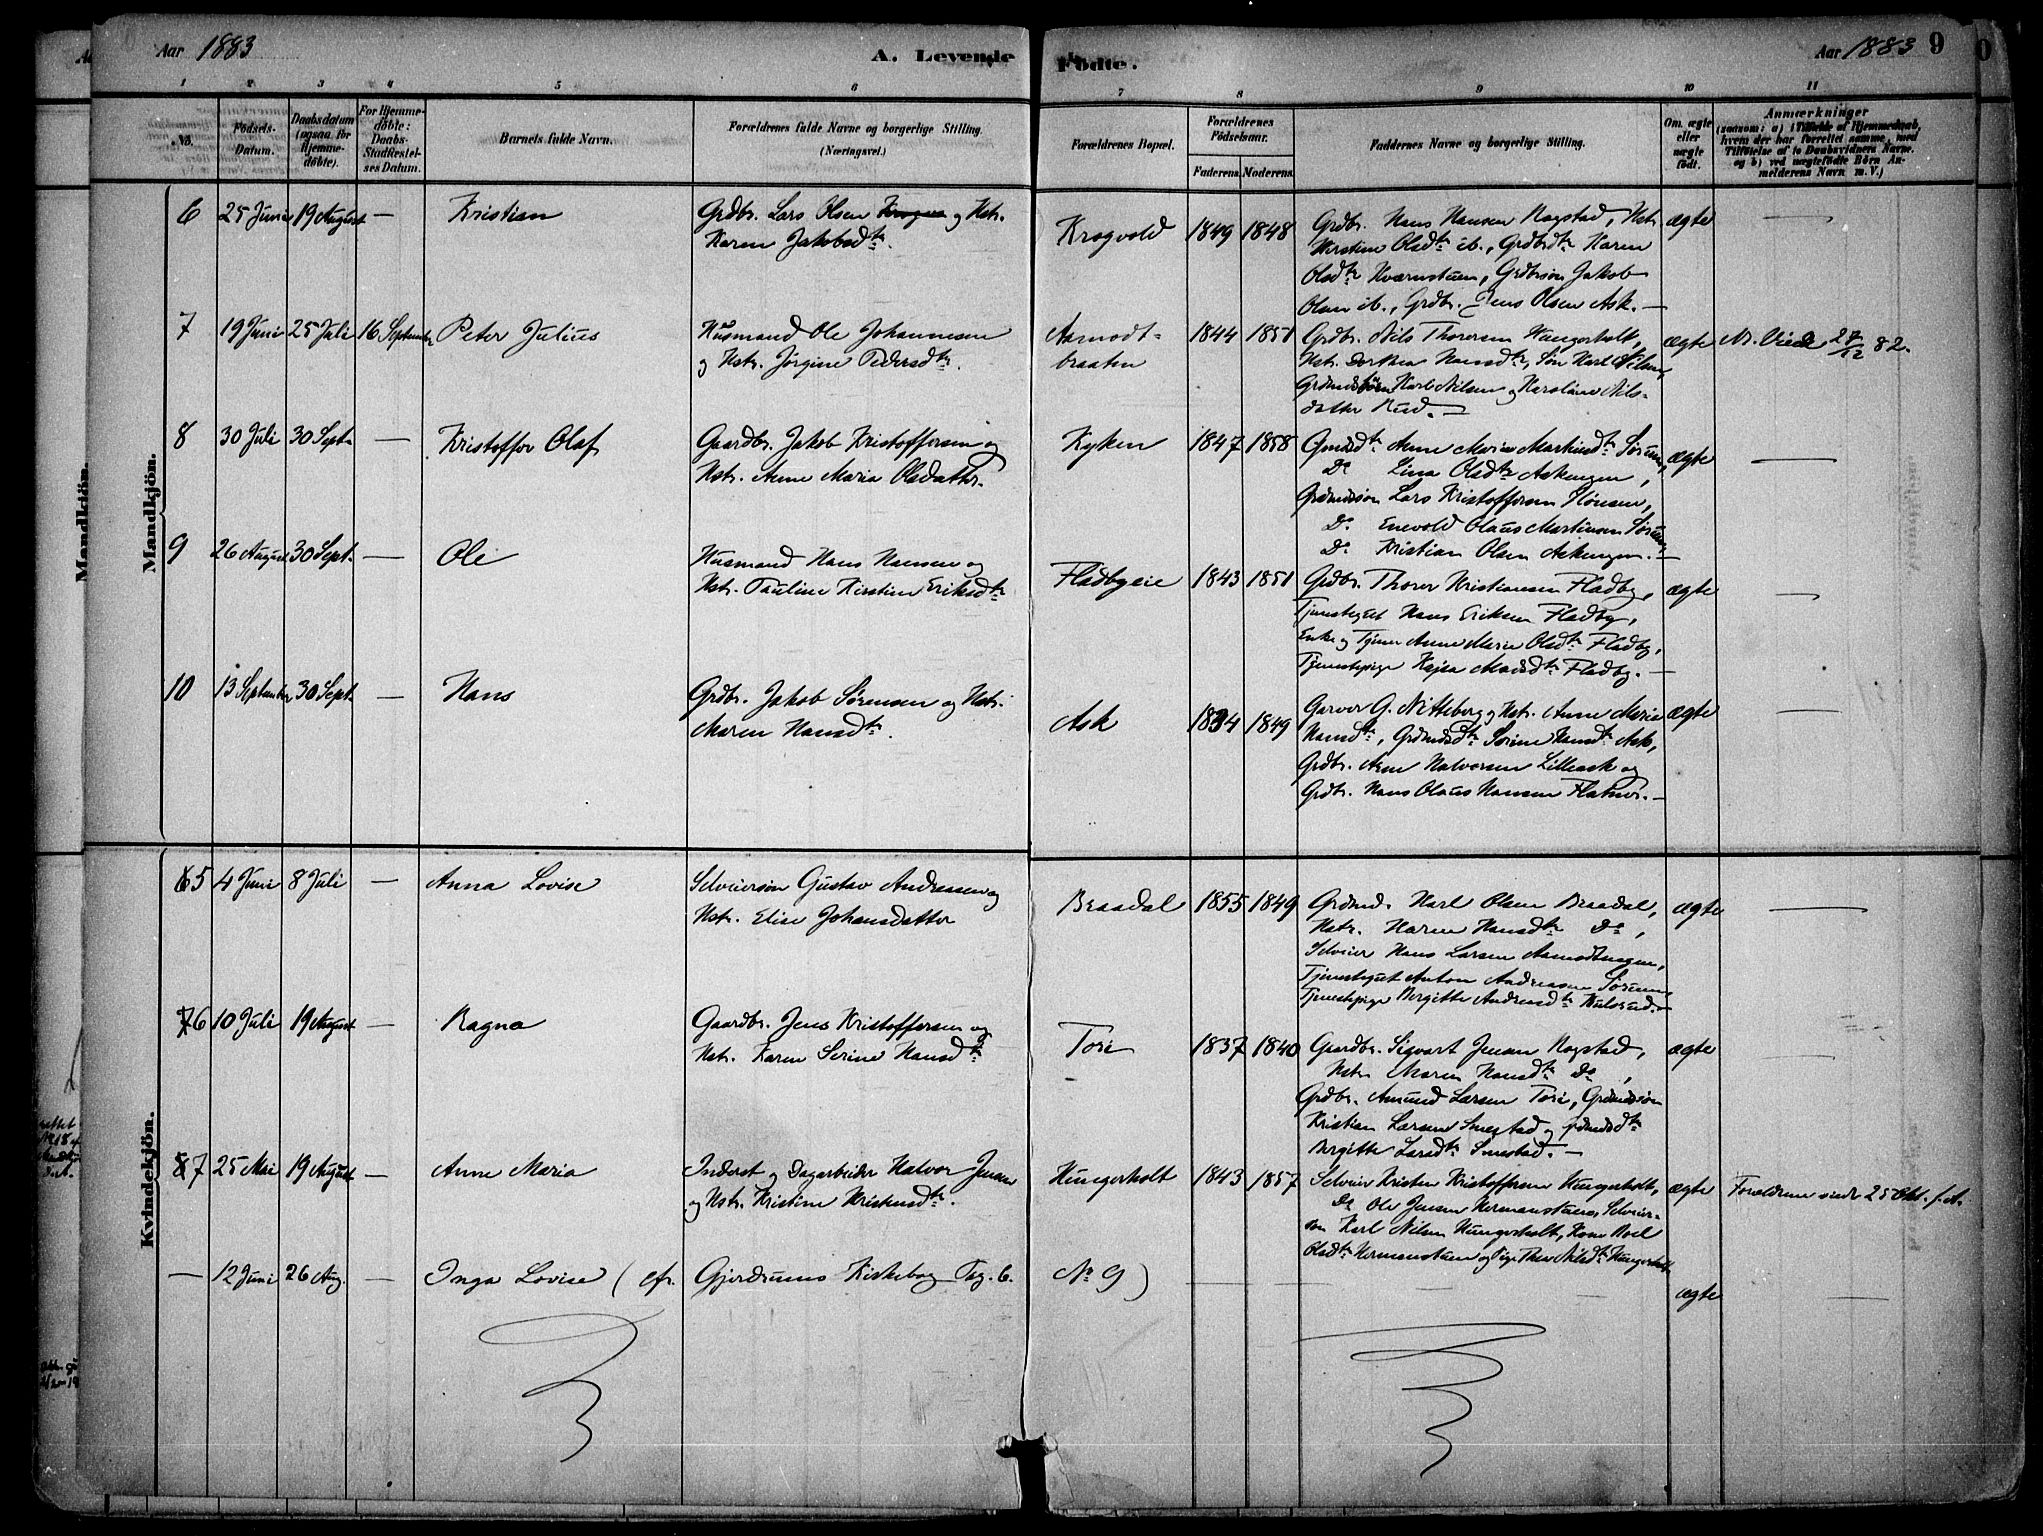 Aar 1883 A. Levende Födte. Aar 1883 9
1 2 3 4 5 6 7 8 9 10 11
No.
Födsels-Datum.
Daabsdatum (ogsaa for Hjemme-döbte).
For Hjemme-döbte: Daabs-Stadfæstel-ses Datum.
Barnets fulde Navn.
Forældrenes fulde Navne og borgerlige Stilling.
(Næringsvei.)
Forældrenes Bopæl.
Forældrenes Födselsaar.
Faderens. Moderens.
Faddernes Navne og borgerlige Stilling.
Om ægte eller uægte födt.
Anmærkninger
(saasom: a) i Tilfælde af Hjemmedaab,
hvem der har forrettet samme, med
Tilföielse af to Daabsvidners Navne,
og b) ved uægtefödte Börn An-
melderens Navn m. V.)
Mandkjön.
6 25 Juni 19 August — Kristian
Grdbr. Lars Olsen Krogvo og Hstr.
Karen Jakobsdtr.
Krogvold 1849 1848
Grdbr. Hans Hansen Ragstad, Hstr.
Kirstine Olsdtr ib., Grdbrdtr Karen
Olsdtr Kværnstuen, Grdbrsøn Jakob
Olsen ib., Grdbr. Jens Olsen Ask. —
ægte —
7 19 Juni 25 Juli 16 September Peter Julius
Husmand Ole Johannesen
og Hstr. Jørgine Pedersdtr.
Aamodt-
braaten
1844 1851
Grdbr. Nils Thoresen Hungerholt,
Hstr. Dorthea Hansdtr, Søn Karl Nilsen,
Karl Nilsen og Karoline Nils-
datter Rud. —
ægte 27/12 82.
8 30 Juli 30 Sept. — Kristoffer Olaf
Gaardbr. Jakob Kristoffersen og
Hstr. Anne Maria Olsdatter.
Kyken 1847 1858
Gmdsdtr Anne Marie Martinsdtr Sørum,
Do Lina Olsdtr Askengen,
Grdmdssøn Lars Kristoffersen
Do Enevold Olaus Martinsen Sørum,
Do Kristian Olsen Askengen. —
ægte —
9 26 August 30 Sept. — Ole
Husmand Hans Hansen og
Hstr. Pauline Kirstine Eriksdtr
Fladbyeie 1843 1851
Grdbr. Thorer Kristiansen Fladby,
Tjenestegut Hans Eriksen Fladby,
Enke og Tjener Anne Marie Olsdtr Fladby,
Tjenestepige Kajsa Madsdtr Fladby. —
ægte —
10 13 September 30 Sept. — Hans
Grdbr. Jakob Sørensen og Hstr.
Maren Hansdtr.
Ask 1834 1849
Garver G. Nitteberg og Hstr. Anne Maria
Hansdtr, Grdmdsdtr Sørine Hansdtr Ask,
Grdbr. Arne Halvorsen Lilleask og
Grdbr. Hans Olaus Hansen Flatner. —
ægte —
Kvindekjön.
5 4 Juni 8 Juli — Anna Lovise
Selveiersøn Gustav Andreassen og
Hstr. Elise Johansdatter
Braadal 1855 1849
Grdmd. Karl Olsen Braadal,
Hstr. Karen Hansdtr Do,
Selveier Hans Larsen Aamodtengen,
Tjenestegut Anton Andreassen Sørum,
Tjenestepige Bergitte Andreasdtr Hulesud. —
ægte —
6 10 Juli 19 August — Ragna
Gaardbr. Jens Kristoffersen og
Hstr. Karen Serine Hansdtr
Tori 1837 1840
Gaardbr. Sigvart Jensen Ragstad,
Hstr. Maren Hansdtr Do,
Grdbr. Amund Larsen Tori, Grdmdssøn
Kristian Larsen Smestad og grdmdsdtr
Bergitte Larsdtr Smestad. —
ægte —
7 25 Mai 19 August — Anne Maria
Inderst og Dagarbeider Halvor Jensen
og Hstr. Kristine Kristensdtr.
Hungerholt 1843 1857
Selveier Kristen Kristoffersen Hungerholt,
Do Ole Jensen Hermanstuen, Selveier-
søn Karl Nilsen Hungerholt, Kone Roel
Olsdtr Hermanstuen og Pige Thea Nilsdtr Hungerholt
ægte Forældrene viede 25 Okt. f. A.
— 12 Juni 26 Aug. — Inga Lovise (cfr. Gjerdrums Kirkebog Pag. 6. No 9) — ægte —